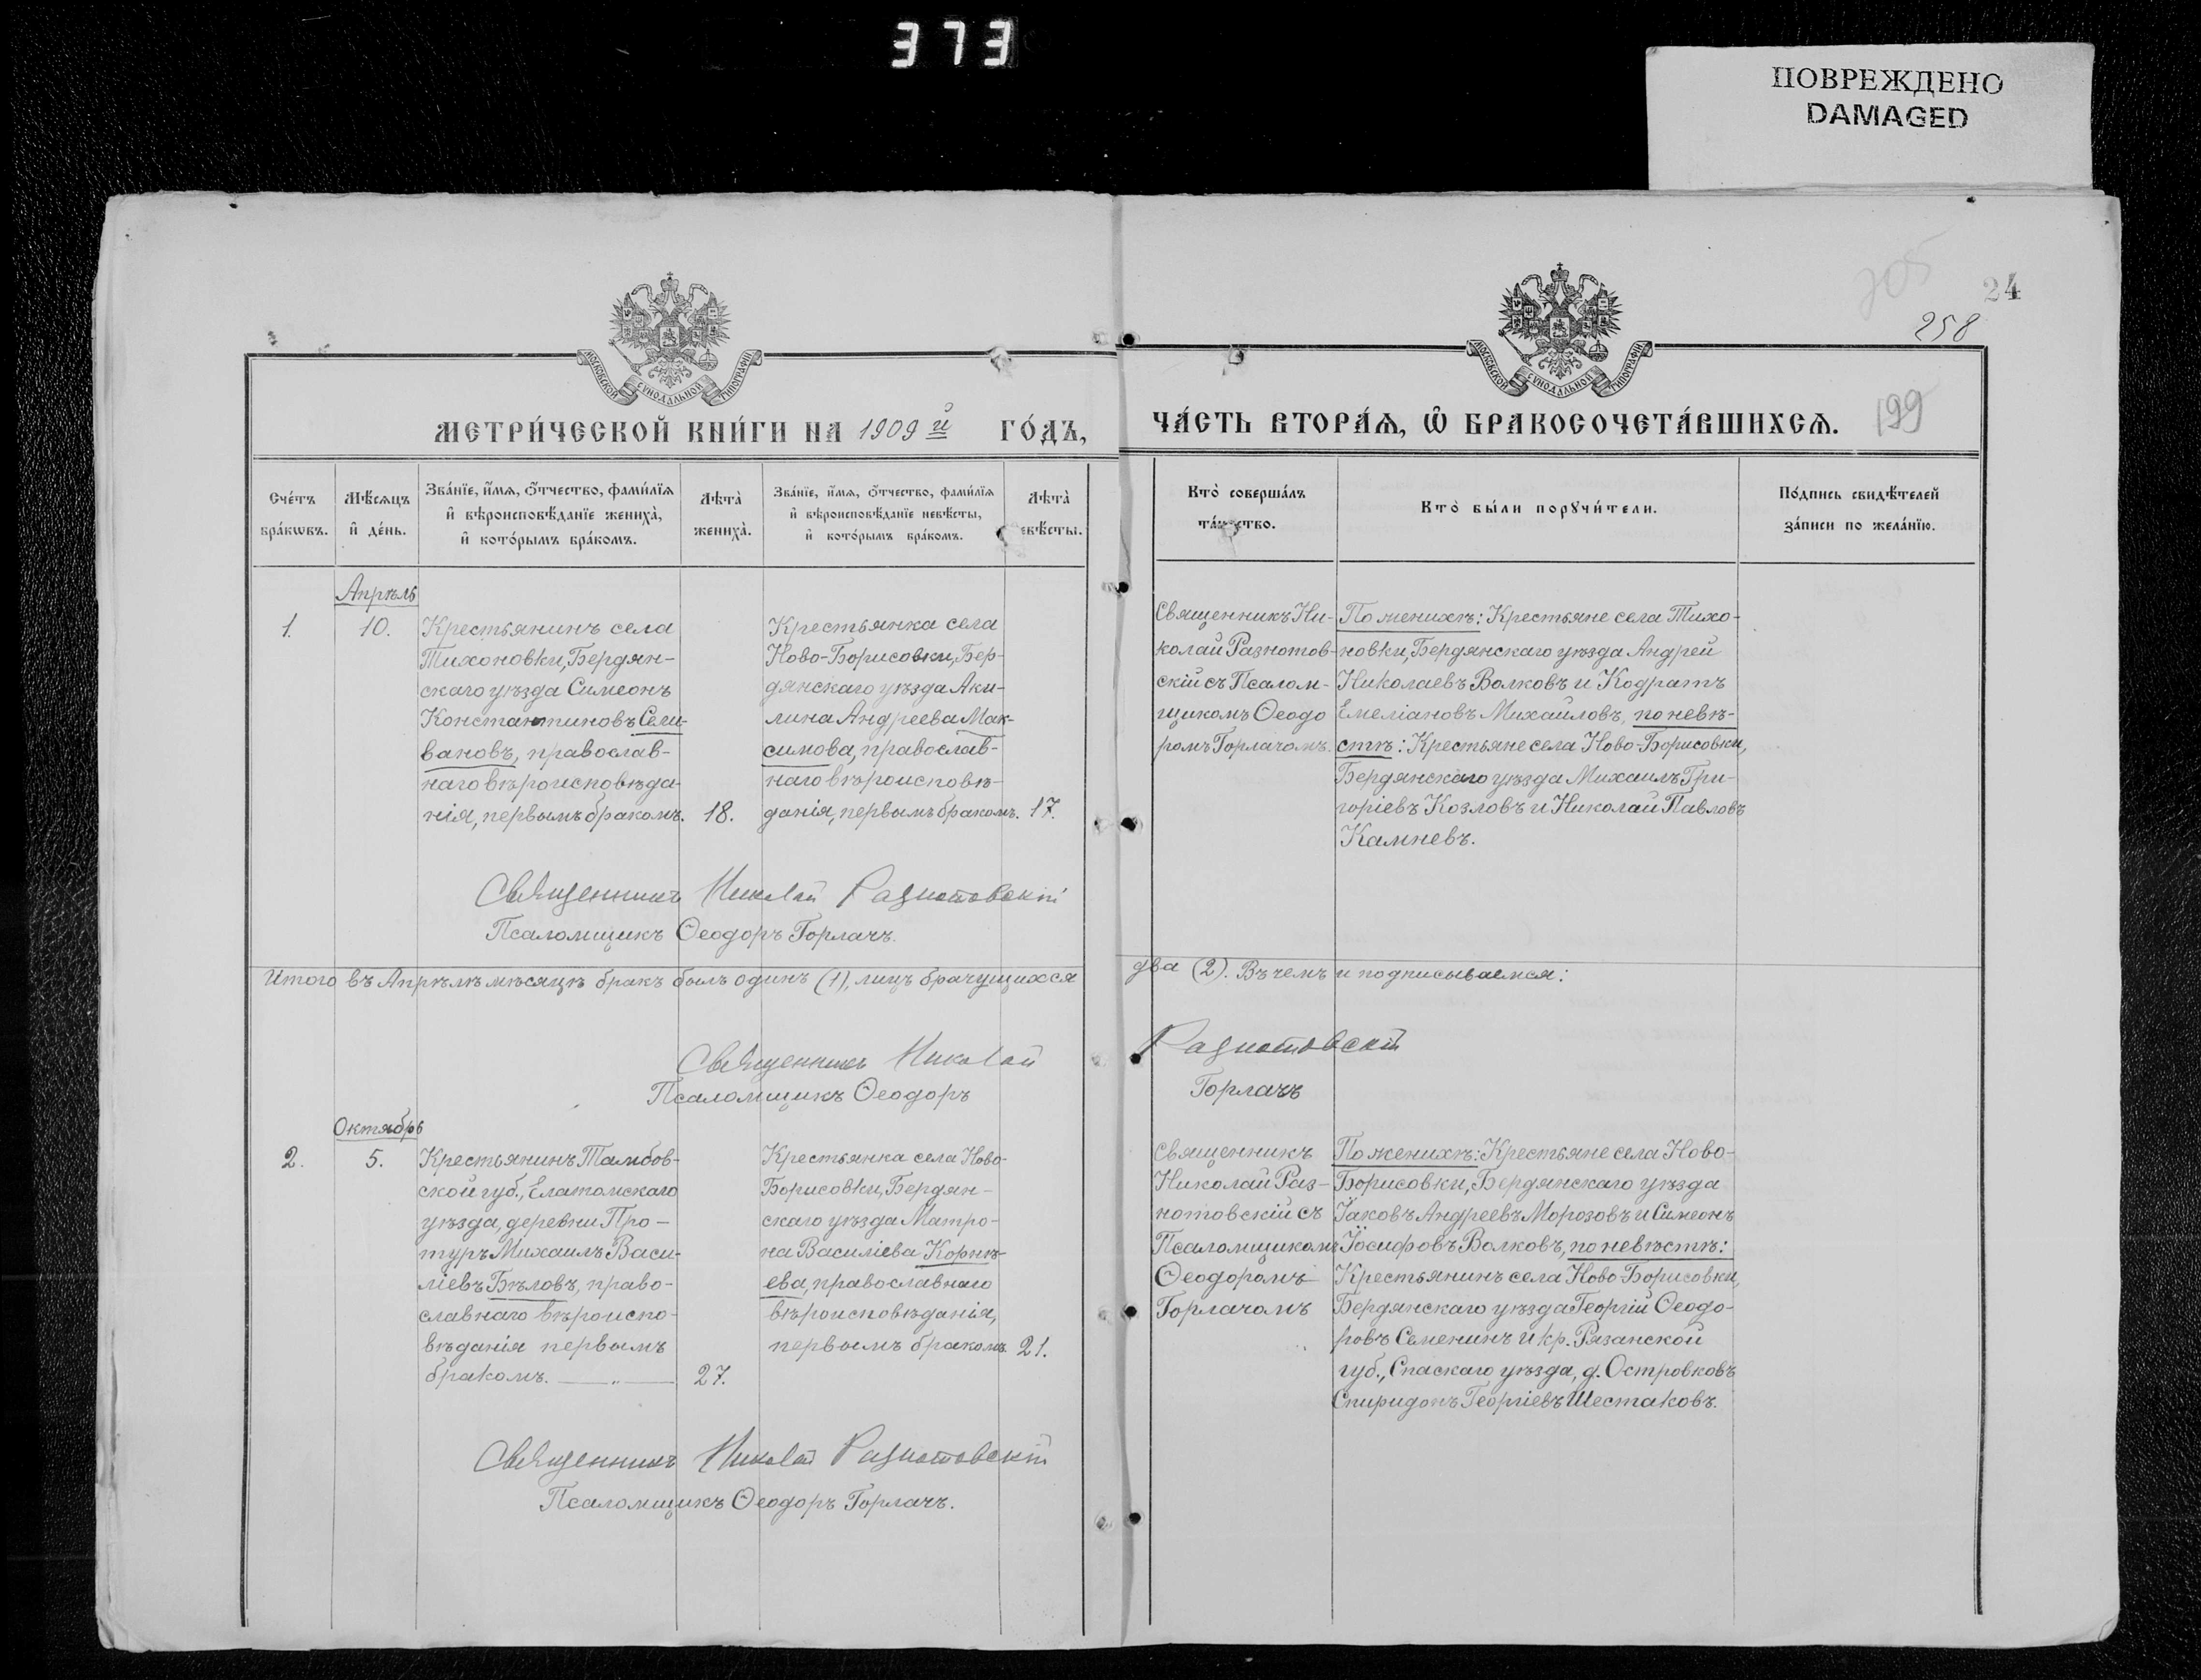 373
ПОВРЕЖДЕНО
DAMAGED
24
258
199
МОСКОВСКОЙ СѴНОДАЛЬНОЙ ТИПОГРАФІИ
МОСКОВСКОЙ СѴНОДАЛЬНОЙ ТИПОГРАФІИ
МЕТРИ́ЧЕСКОЙ КНИ́ГИ НА 1909й ГО́ДЪ,
ЧА́СТЬ ВТОРА́Ѧ, Ѽ БРАКОСОЧЕТА́ВШИХСѦ.
Сче́тъ
бра́кѡвъ.
Мѣ́сѧцъ
и҆ де́нь.
Зва́нїе, и҆́мѧ, ѻ҆́тчество, фами́лїѧ
и҆ вѣроисповѣ́данїе жениха̀,
и҆ кото́рымъ бра́комъ.
Лѣта̀
жениха̀.
Зва́нїе, и҆́мѧ, ѻ҆́тчество, фами́лїѧ
и҆ вѣроисповѣ́данїе невѣ́сты,
и҆ кото́рымъ бра́комъ.
Лѣта̀
евѣ́сты.
Кто̀ соверша́лъ
та́ ство.
Кто̀ бы́ли порꙋчи́тели.
По́дпись свидѣ́телей
за́писи по жела́нїю.
Апрѣль
1.
10.
Крестьянинъ села
Тихоновки, Бердян-
скаго уѣзда Симеонъ
Константиновъ Сели-
вановъ, православ-
наго вѣроисповѣда-
нія, первымъ бракомъ.
18.
Крестьянка села
Ново-Борисовки, Бер-
дянскаго уѣзда Аки-
лина Андреева Мак-
симова, православ-
наго вѣроисповѣ-
данія, первымъ бракомъ.
17.
Священникъ Ни-
колай Разнотов-
скій съ Псалом-
щикомъ Ѳеодо
ромъ Горлачомъ.
По женихѣ: Крестьяне села Тихо-
новки, Бердянскаго уѣзда Андрей
Николаевъ Волковъ и Кодратъ
Емеліановъ Михайловъ, по невѣ-
стѣ: Крестьяне села Ново-Борисовки,
Бердянскаго уѣзда Михаилъ Гри-
горіевъ Козловъ и Николай Павловъ
Камневъ.
Священникъ Николай Разнотовскій
Псаломщикъ Ѳеодоръ Горлачъ.
Итого въ Апрѣлѣ мѣсяцѣ бракъ былъ одинъ (1), лицъ брачущихся два (2). Въ чемъ и подписываемся:
Священникъ Николай Разнотовскій
Псаломщикъ Ѳеодоръ Горлачъ
Октябрь
2.
5.
Крестьянинъ Тамбов-
ской губ., Елатомскаго
уѣзда, деревни Про-
туръ Михаилъ Васи-
ліевъ Бѣловъ, право-
славнаго вѣроиспо-
вѣданія первымъ
бракомъ. — „ —
27.
Крестьянка села Ново-
Борисовки, Бердян-
скаго уѣзда Матро-
на Василіева Корнѣ-
ева, православнаго
вѣроисповѣданія,
первымъ бракомъ.
21.
Священникъ
Николай Раз-
нотовскій съ
Псаломщикомъ
Ѳеодоромъ
Горлачомъ
По женихѣ: Крестьяне села Ново-
Борисовки, Бердянскаго уѣзда
Іаковъ Андреевъ Морозовъ и Симеонъ
Іосифовъ Волковъ, по невѣстѣ:
Крестьянинъ села Ново-Борисовки,
Бердянскаго уѣзда Георгій Ѳеодо-
ровъ Семенинъ и кр. Рязанской
губ., Спаскаго уѣзда, д. Островковъ
Спиридонъ Георгіевъ Шестаковъ.
Священникъ Николай Разнотовскій
Псаломщикъ Ѳеодоръ Горлачъ.